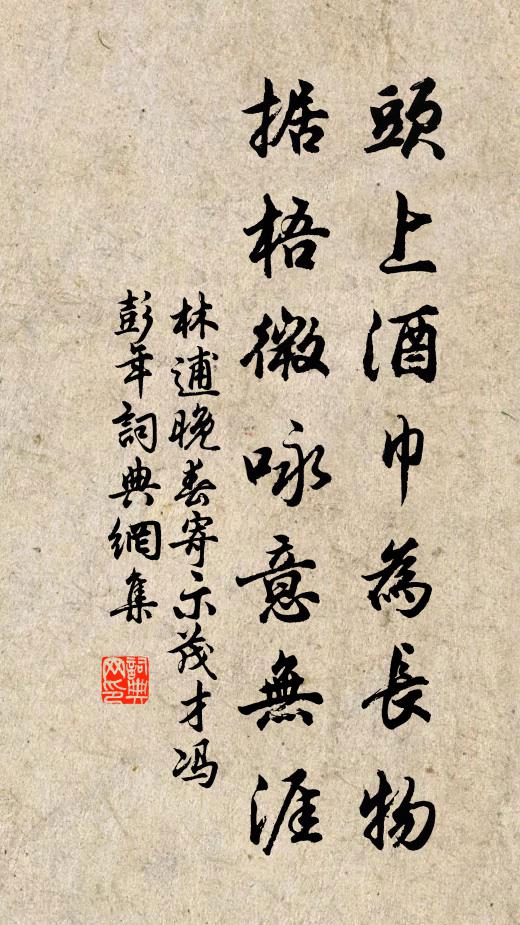 頭上酒巾為長物
据梧微咏意無涯
林逋晚春寄示茂才冯
彭年詞典網集
詞典
网印